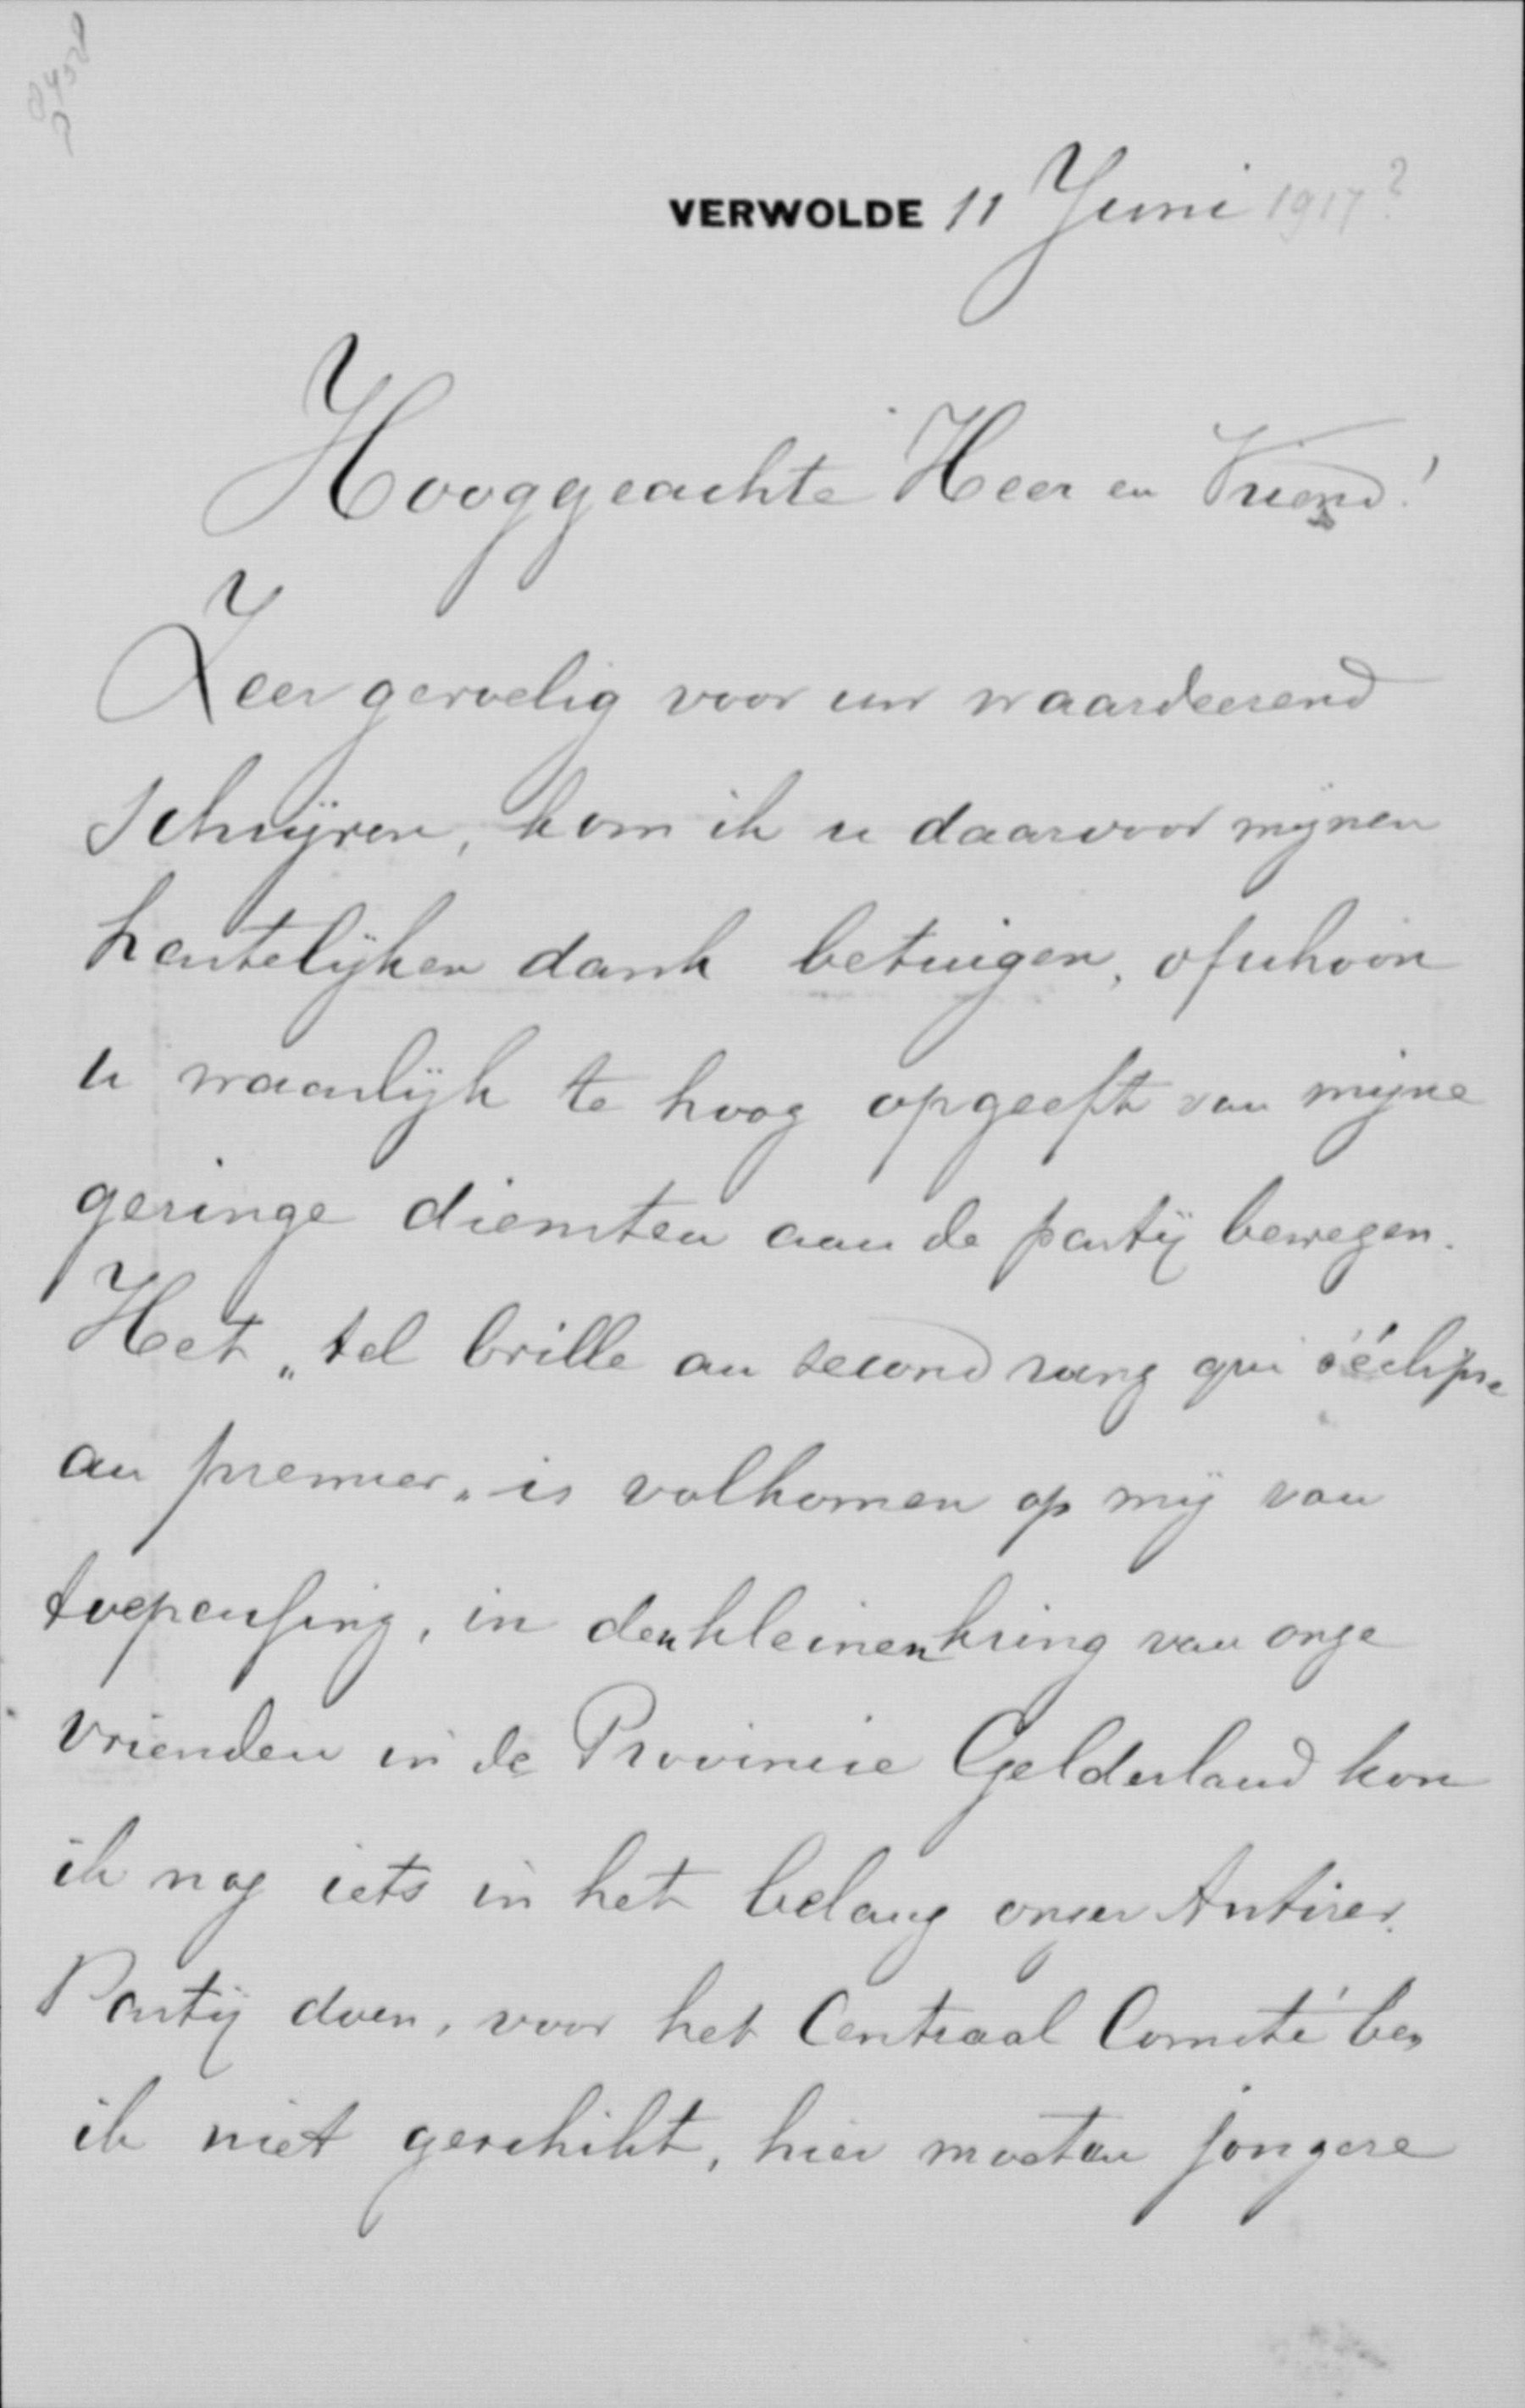 VERWOLDE 11 Juni 1917?
Hooggeachte Heer en Vriend!
Zeer gevoelig voor uw waardeerend
schrijven, kom ik u daarvoor mijnen
hartelijken dank betuigen, ofschoon
u waarlijk te hoog opgeeft van mijne
geringe diensten aan de partij bewezen.
Het „tel brille au second rang qui s'éclipse
au premier" is volkomen op mij van
toepassing, in den kleinen kring van onze
vrienden in de Provincie Gelderland kon
ik nog iets in het belang onzer Antirev.
Partij doen, voor het Centraal Comité ben
ik niet geschikt, hier moeten jongere